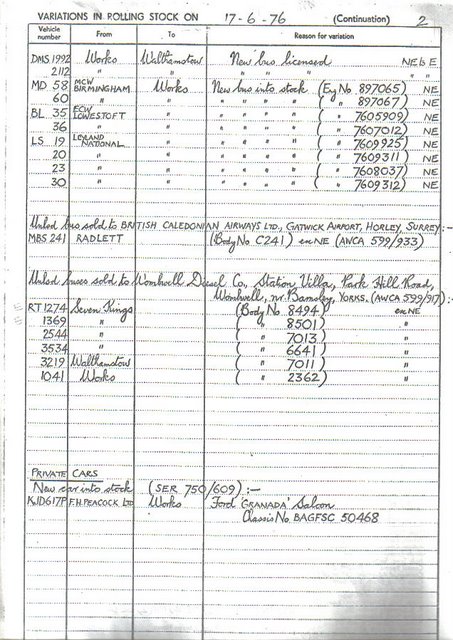 VARIATIONS IN ROLLING STOCK ON 17-6-76 (Continuation) 2
Vehicle number From To Reason for variation
DMS 1992 Works Walthamstow New bus licensed NE to E
2112 " " " " " " "
MD 58 MCW BIRMINGHAM Works New bus into stock (Eng No 897065) NE
60 " " " " " " ( " 897067) NE
BL 35 ECW LOWESTOFT " " " " " ( " 7605909) NE
36 " " " " " " ( " 7607012) NE
LS 19 LEYLAND NATIONAL " " " " " ( " 7609925) NE
20 " " " " " " ( " 7609311) NE
23 " " " " " " ( " 7608037) NE
30 " " " " " " ( " 7609312) NE
Unlsd bus sold to BRITISH CALEDONIAN AIRWAYS LTD., GATWICK AIRPORT, HORLEY, SURREY:-
MBS 241 RADLETT (Body No C241) ex NE (AWCA 599/933)
Unlsd buses sold to Wombwell Diesel Co, Station Villa, Park Hill Road,
Wombwell, nr. Barnsley, YORKS. (AWCA 599/917) :-
RT 1274 Seven Kings (Body No 8494) ex NE
1369 " ( " 8501) "
2544 " ( " 7013) "
3534 " ( " 6641) "
3219 Walthamstow ( " 7011) "
1041 Works ( " 2362) "
PRIVATE CARS
New car into stock (SER 750/609) :-
KJD617P F.H. PEACOCK LTD Works Ford 'GRANADA' Saloon
Chassis No BAGFSC 50468